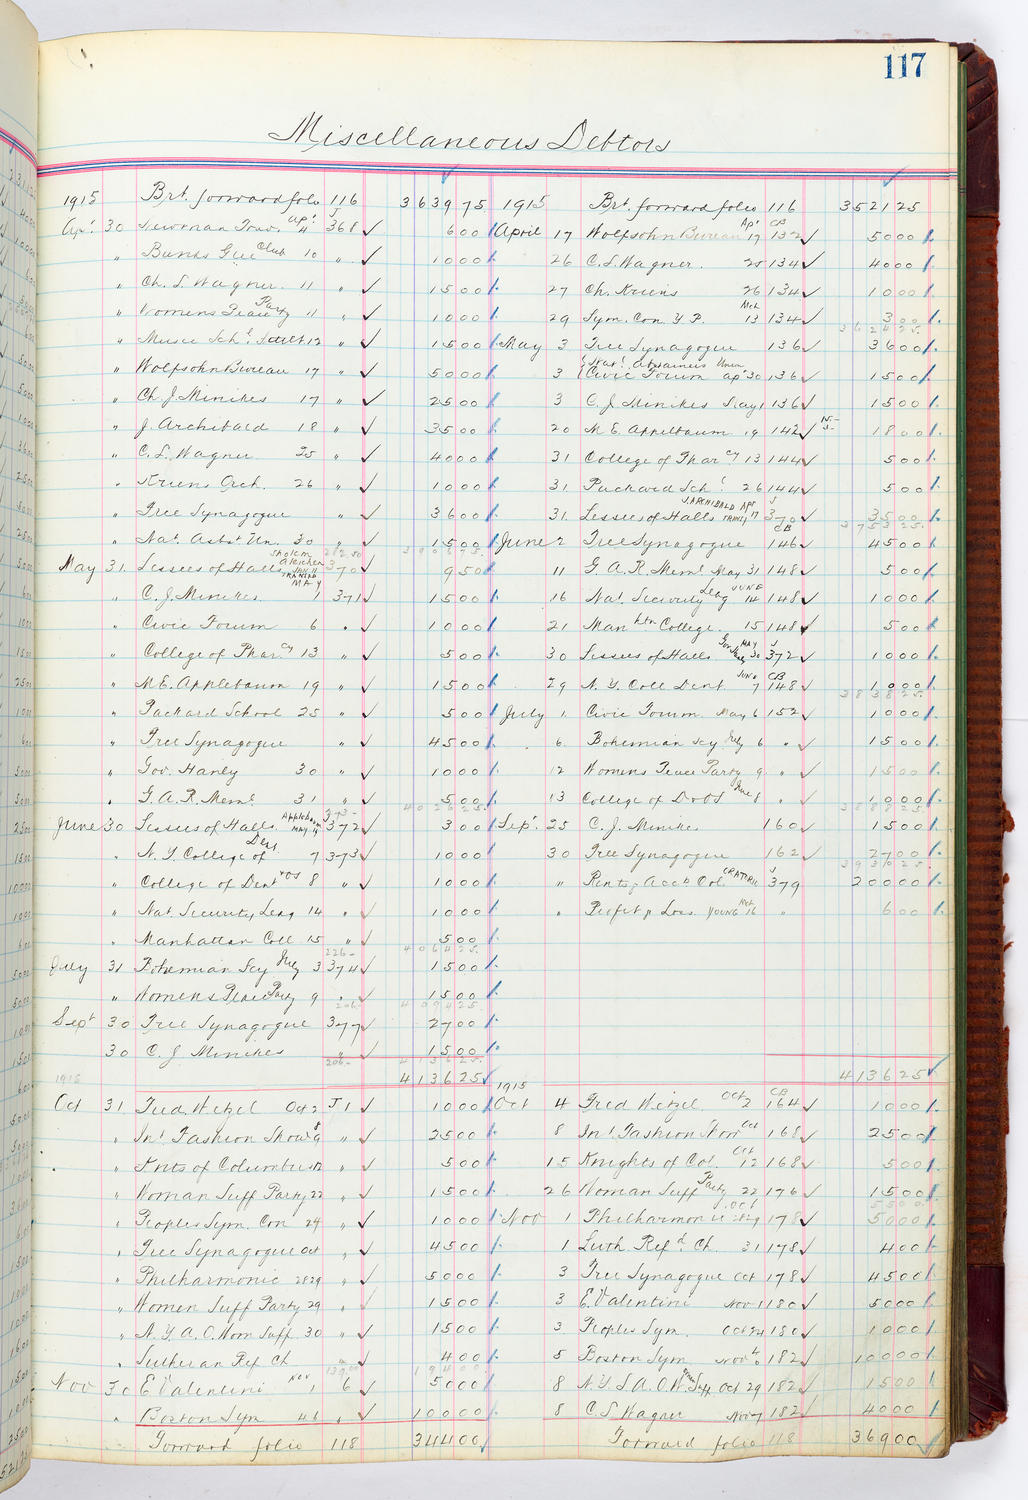 117
Miscellaneous Debtors
1915 Brt. forward folio 116 3639 75
Ap'. 30 Newman Trav. Ap'. 4 J 368 ✓ 6 00
" Bunds Glee Club 10 " ✓ 10 00
" Ch. L. Wagner. 11 " ✓ 15 00
" Womens Peace Party 11 " ✓ 10 00
" Music Sch'. Settlt 12 " ✓ 15 00
" Wolfsohn Bureau 17 " ✓ 50 00
" Ch J. Minikes 17 " ✓ 25 00
" J. Archibald 18 " ✓ 35 00
" C. L. Wagner 25 " ✓ 40 00
" Kriens Orch. 26 " ✓ 10 00
" Free Synagogue " ✓ 36 00
" Nat. Abst. Un. 30 " ✓ 15 00
May 31 Lessees of Halls Sholem Aleichem 370 9 50
" C. J. Minikes. 1 371 ✓ 15 00
" Civic Forum 6 " ✓ 10 00
" College of Phar cy 13 " ✓ 5 00
" M E. Applebaum 19 " ✓ 15 00
" Packard School 25 " ✓ 5 00
" Free Synagogue " ✓ 45 00
" Gov. Hanly 30 " ✓ 10 00
" G. A. R. Meml. 31 " ✓ 5 00
4029 25
June 30 Lessees of Halls Applebaum May 19 372 ✓ 3 00
" N. Y. College of Den 7 373 ✓ 10 00
" College of Dent 8 " ✓ 10 00
" Nat. Security Leag 14 " ✓ 10 00
" Manhattan Coll 15 " ✓ 5 00
4064 25
July 31 Bohemian Scy July 3 374 ✓ 15 00
" Womens Peace Party 9 " ✓ 15 00
4094 25
Sept 30 Free Synagogue 377 ✓ 27 00
30 C. J Minikes " ✓ 15 00
4136 25
4136 25 ✓
1915
Oct 31 Fred Wetzel Oct 2 J 1 ✓ 10 00
" Int Fashion Show 8 9 " ✓ 25 00
" Knts of Columbus 12 " ✓ 5 00
" Woman Suff Party 22 " ✓ 15 00
" Peoples Sym. Con 24 " ✓ 10 00
" Free Synagogue Oct " ✓ 45 00
" Philharmonic 28 29 " ✓ 50 00
" Women Suff Party 29 " ✓ 15 00
" N. Y. A. O. Wom Suff 30 " ✓ 15 00
" Lutheran Ref Ch " ✓ 4 00
194 00
Nov 30 E Valentini Nov 1 6 ✓ 50 00
" Boston Sym 4 6 " ✓ 100 00
Forward folio 118 344 00 ✓
1915 Brt. forward folio 116 3521 25
April 17 Wolfsohn Bureau Ap' 17 CB 132 ✓ 50 00
26 C. L. Wagner. 25 134 ✓ 40 00
27 Ch. Kriens 26 134 ✓ 10 00
29 Sym. Con. Y. P. Mch 13 134 ✓ 3 00
3624 25
May 3 Free Synagogue 136 ✓ 36 00
Nat'. Abstainers Union
3 Civic Forum ap' 30 136 ✓ 15 00
3 C. J. Minikes May 1 136 ✓ 15 00
20 M E. Appelbaum 19 142 ✓ 15- 3- 18 00
31 College of Phar cy 13 144 ✓ 5 00
31. Packard Sch'. 26 144 ✓ 5 00
31. Lessees of Halls J. ARCHIBALD Apr 17 J 370 ✓ 35 00
3753 25
June 2 Free Synagogue CB 146 ✓ 45 00
11 G. A. R. Meml. May 31 148 ✓ 5 00
16 Nat. Security Leag JUNE 14 148 ✓ 10 00
21 Man htn College. 15 148 ✓ 5 00
30 Lessees of Halls Gov Hanly MAY 30 J 372 ✓ 10 00
29 N. Y. Coll Dent. June 7 CB 148 ✓ 10 00
3838 25
July 1. Civic Forum. May 6 152 ✓ 10 00
6. Bohemian Scy July 6 " ✓ 15 00
12 Womens Peace Party 9 " ✓ 15 00
13 College of D of DS June 8 " ✓ 10 00
3888 25
Sep'. 25 C. J. Minikes 160 ✓ 15 00
30 Free Synagogue 162 ✓ 27 00
3930 25
" Rents, Acc't Col. ORATORIO J 379 200 00
" Profit & Loss. YOUNG Mch 16 " 6 00
4136 25 ✓
1915
Oct 4 Fred Wetzel. Oct 2 CB 164 ✓ 10 00
8 Int. Fashion Show Oct 168 ✓ 25 00
15 Knights of Col. Oct 12 168 ✓ 5 00
26 Woman Suff Party 22 176 ✓ 15 00
55 00
Nov 1 Philharmonic Oct 28 29 178 ✓ 50 00
1 Luth. Ref d. Ch. 31 178 ✓ 4 00
3 Free Synagogue Oct 178 ✓ 45 00
3 E. Valentini Nov 1 180 ✓ 50 00
3. Peoples Sym. Oct 24 180 ✓ 10 00
5 Boston Sym Nov 4 6 182 ✓ 100 00
8 N. Y. S. A. O. W. Suff Oct 29 182 ✓ 15 00
8 C. L. Wagner Nov 7 182 ✓ 40 00
Forward folio 118 369 00 ✓